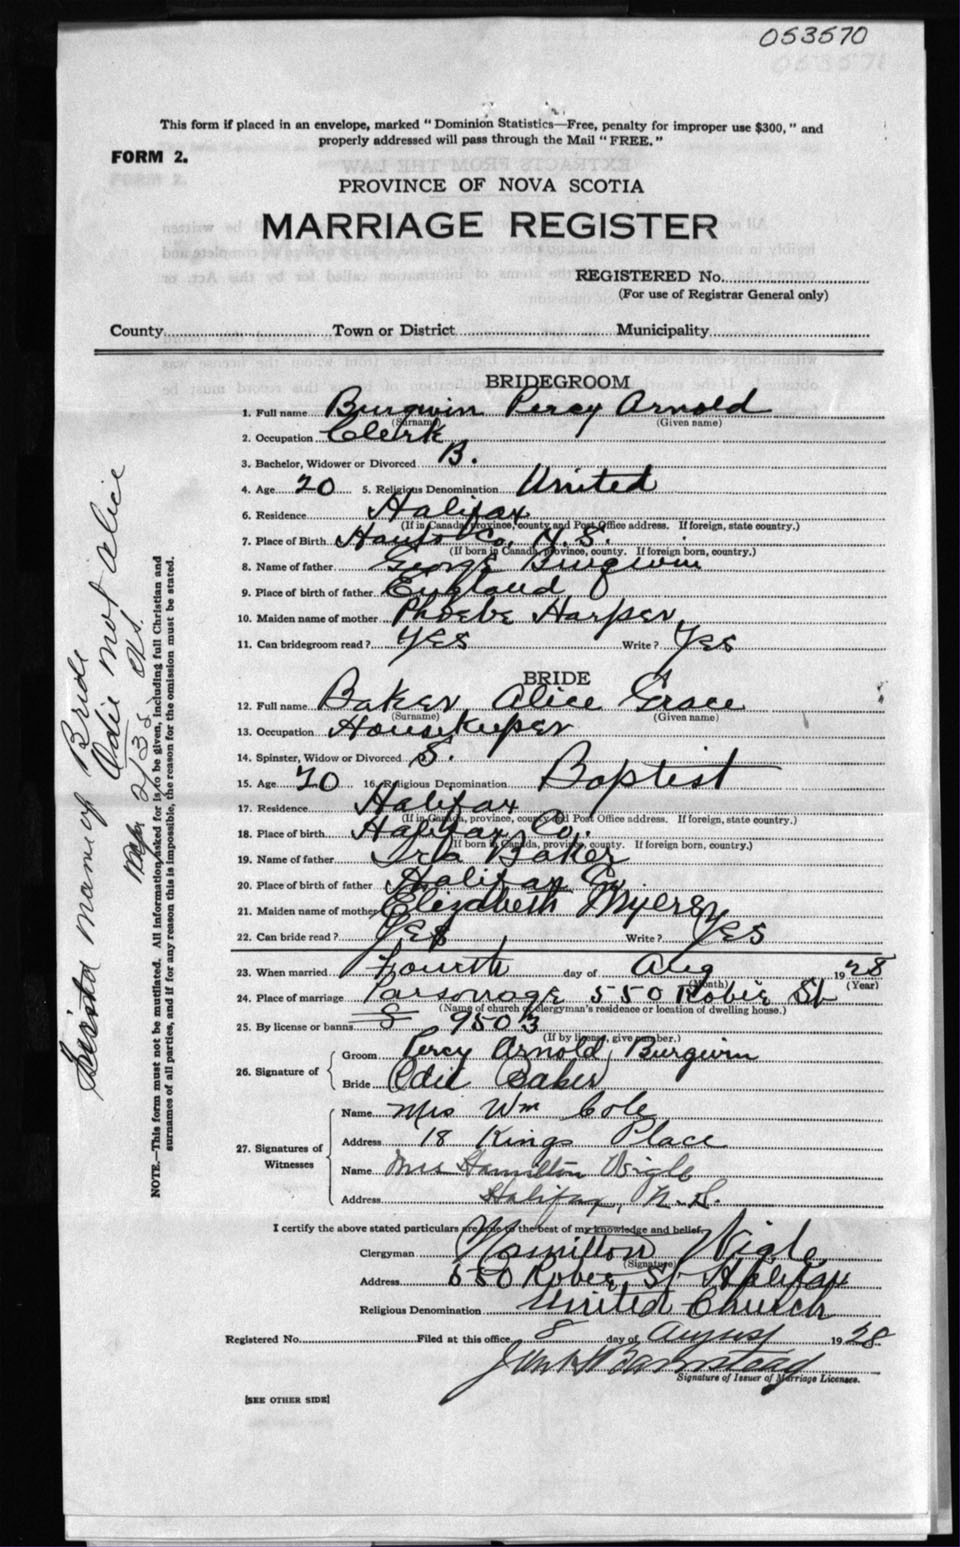 053570
This form if placed in an envelope, marked "Dominion Statistics—Free, penalty for improper use $300," and
properly addressed will pass through the Mail "FREE."
FORM 2.
PROVINCE OF NOVA SCOTIA
MARRIAGE REGISTER
REGISTERED No.
(For use of Registrar General only)
County Town or District Municipality
BRIDEGROOM
1. Full name Burgwin Percy Arnold
(Surname) (Given name)
2. Occupation Clerk
3. Bachelor, Widower or Divorced B.
4. Age 20 5. Religious Denomination United
6. Residence Halifax
(If in Canada, province, county and Post Office address. If foreign, state country.)
7. Place of Birth Hants Co. N.S.
(If born in Canada, province, county. If foreign born, country.)
8. Name of father George Burgwin
9. Place of birth of father England
10. Maiden name of mother Phoebe Harper
11. Can bridegroom read? Yes Write? Yes
BRIDE
12. Full name Baker Alice Grace
(Surname) (Given name)
13. Occupation Housekeeper
14. Spinster, Widow or Divorced S.
15. Age 20 16. Religious Denomination Baptist
17. Residence Halifax
(If in Canada, province, county and Post Office address. If foreign, state country.)
18. Place of birth Halifax Co.
(If born in Canada, province, county. If foreign born, country.)
19. Name of father Ira Baker
20. Place of birth of father Halifax Co
21. Maiden name of mother Elizabeth Myers
22. Can bride read? Yes Write? Yes
23. When married Fourth day of Aug 1928
(Month) (Year)
24. Place of marriage Parsonage 550 Robie St
(Name of church or clergyman's residence or location of dwelling house.)
25. By license or banns 8 9503
(If by license, give number.)
26. Signature of
Groom Percy Arnold Burgwin
Bride Odie Baker
27. Signatures of Witnesses
Name Mrs Wm Cole
Address 18 Kings Place
Name Mrs Hamilton Wigle
Address Halifax, N.S.
I certify the above stated particulars are true to the best of my knowledge and belief.
Clergyman Hamilton Wigle
(Signature)
Address 550 Robie St Halifax
Religious Denomination United Church
Registered No. Filed at this office 8 day of August 1928
Barnstead
Signature of Issuer of Marriage Licenses.
[SEE OTHER SIDE]
NOTE.—This form must not be mutilated. All information asked for is to be given, including full Christian and
surnames of all parties, and if for any reason this is impossible, the reason for the omission must be stated.
name of Bride
Odie not Alice